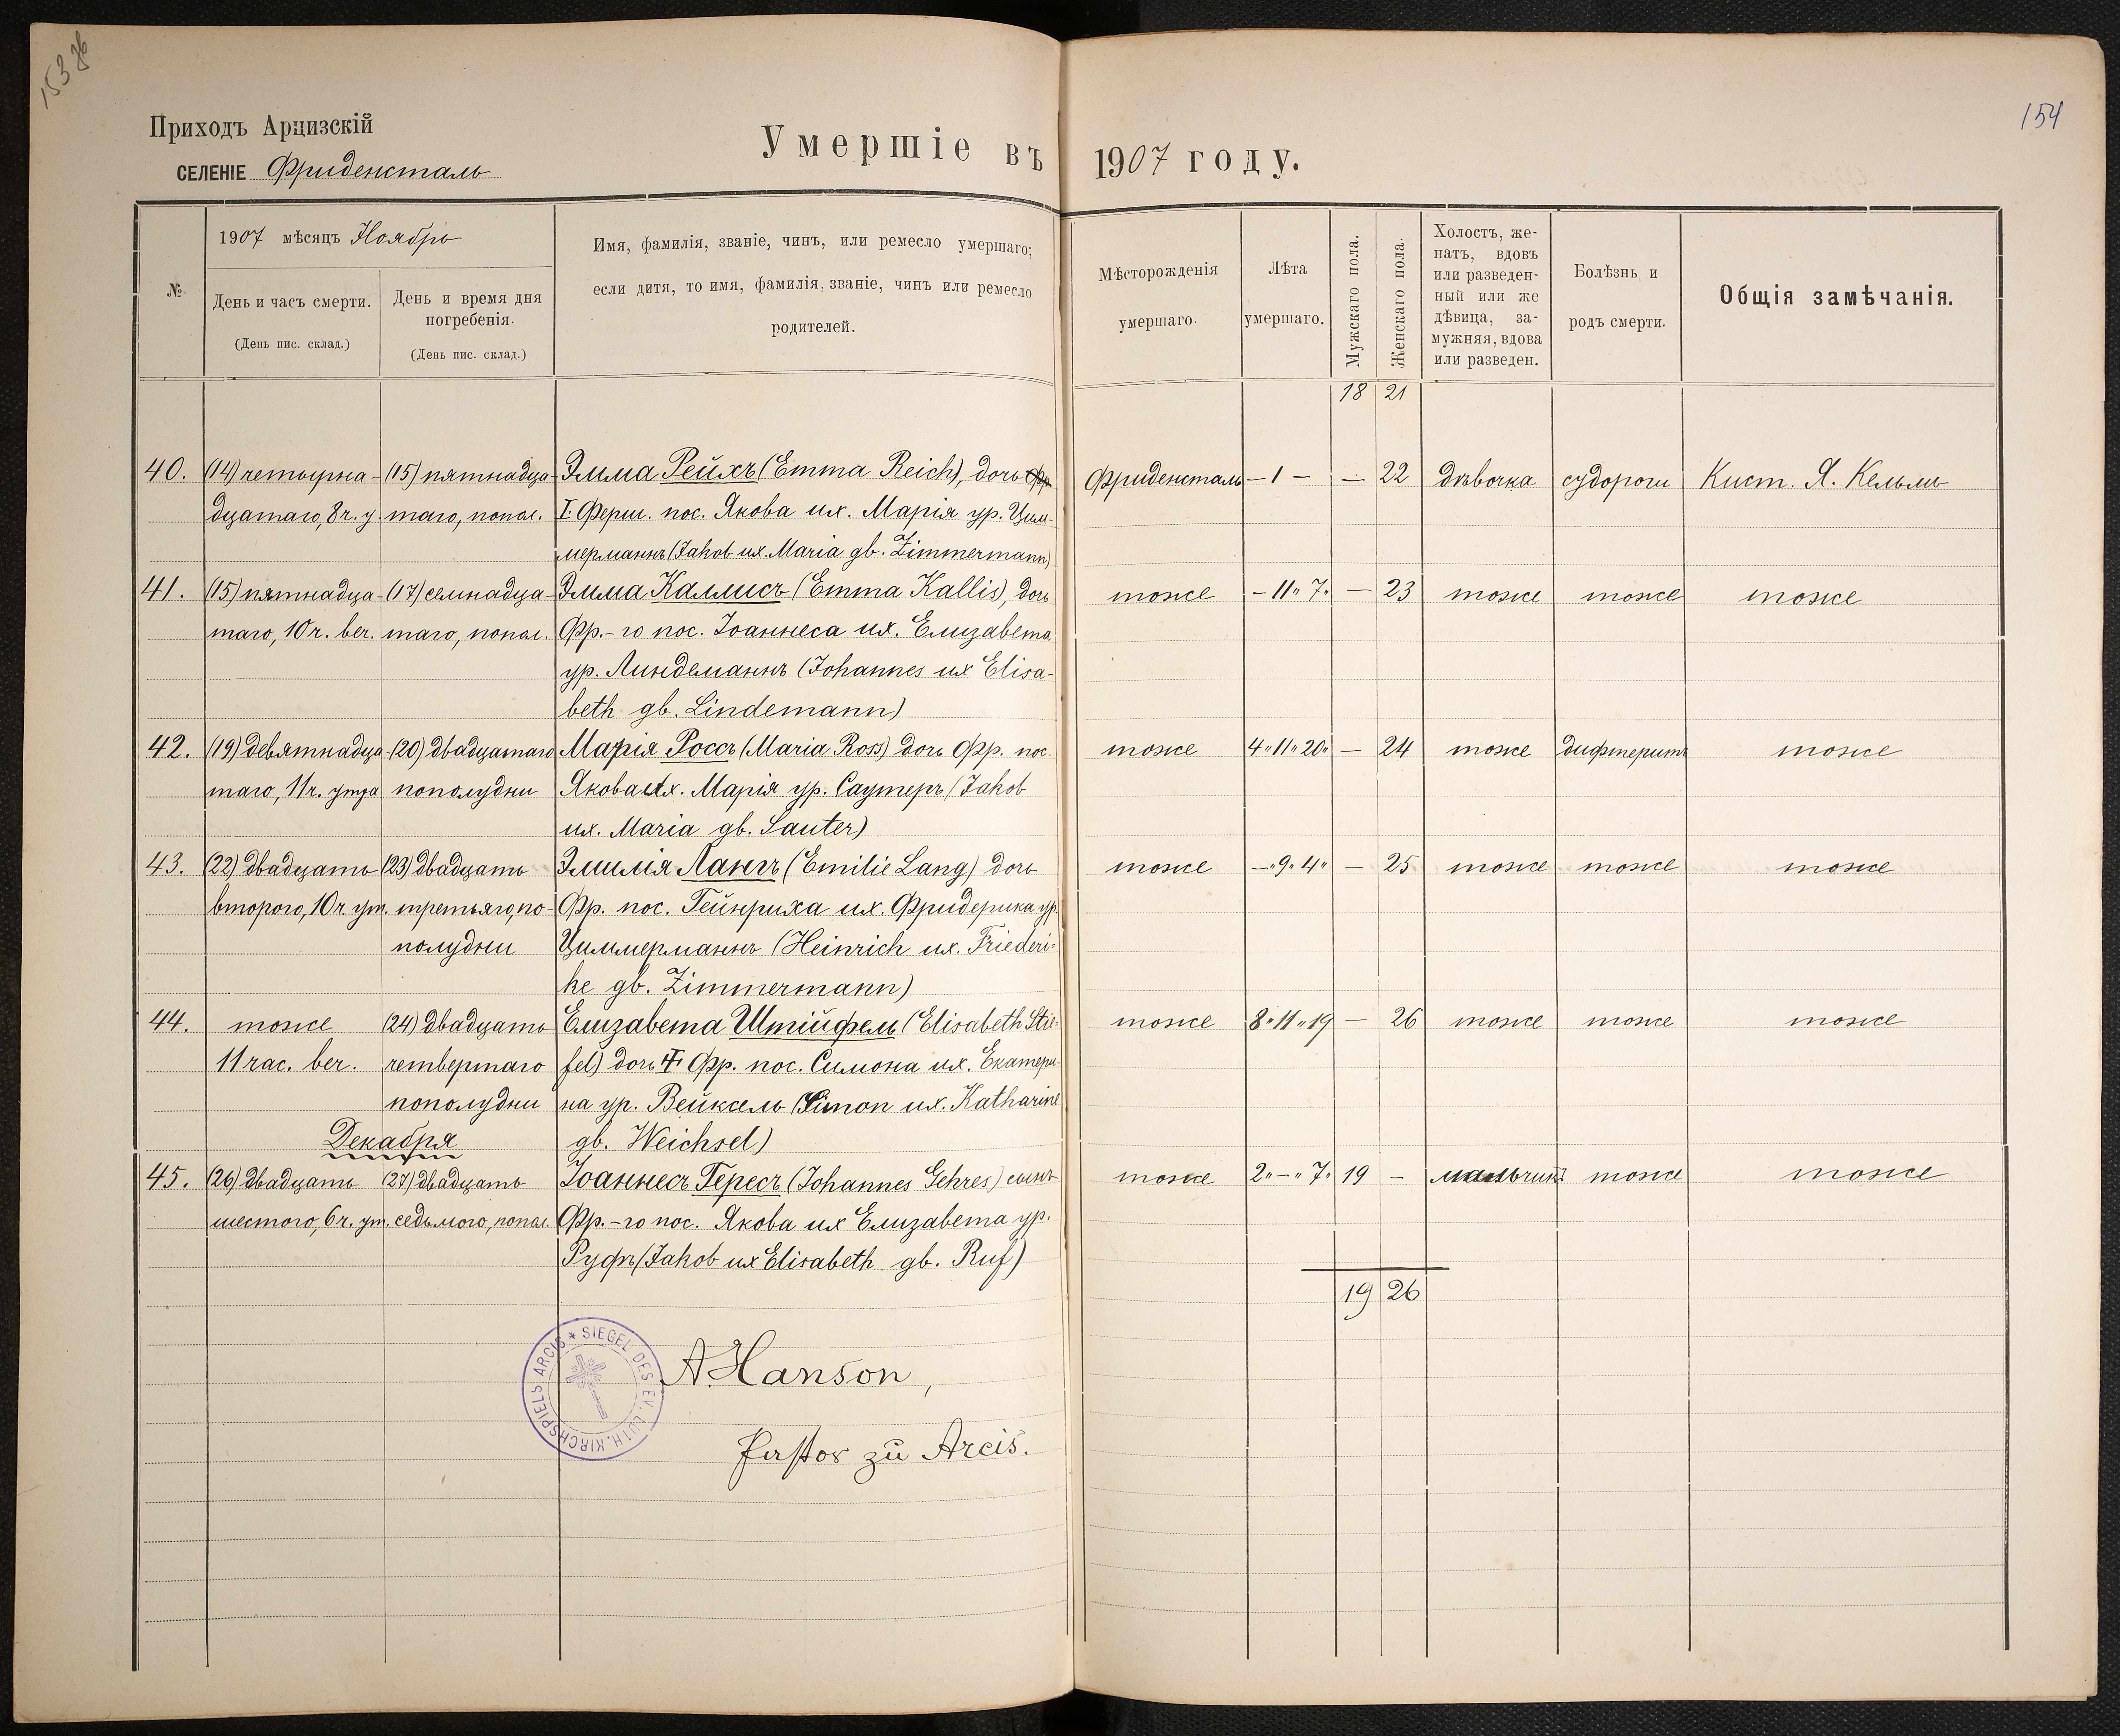 153 об
154
Приходъ Арцизскій
СЕЛЕНІЕ Фриденсталь
Умершіе въ 1907 году.
№
1907 мѣсяцъ Ноябрь
День и часъ смерти.
(День пис. склад.)
День и время дня
погребенія.
(День пис. склад.)
Имя, фамилія, званіе, чинъ, или ремесло умершаго;
если дитя, то имя, фамилія, званіе, чинъ или ремесло
родителей.
Мѣсторожденія
умершаго.
Лѣта
умершаго.
Мужскаго пола.
Женскаго пола.
Холостъ, же-
натъ, вдовъ
или разведен-
ный или же
дѣвица, за-
мужняя, вдова
или разведен.
Болѣзнь и
родъ смерти.
Общія замѣчанія.
18 21
40. (14) четырна- (15) пятнадца- Эмма Рейхъ (Emma Reich), дочь Фриденсталь – 1 – — 22 дѣвочка судороги Кист. Я. Кельмъ
дцатаго, 8 ч. у. таго, попол. I. Ферш. пос. Якова их. Марія ур. Цим-
мерманнъ (Jakob их. Maria gb. Zimmermann)
41. (15) пятнадца- (17) семнадца- Эмма Каллисъ (Emma Kallis), дочь тоже – 11 „ 7. — 23 тоже тоже тоже
таго, 10 ч. веч. таго, попол. Фр.-го пос. Іоаннеса их. Елизавета
ур. Линдеманнъ (Johannes их Elisa-
beth gb. Lindemann)
42. (19) девятнадца- (20) двадцатаго Марія Россъ (Maria Ross) дочь Фр. пос. тоже 4 „ 11 „ 20 „ — 24 тоже дифтеритъ тоже
таго, 11 ч. утра пополудни Якова их. Марія ур. Саутеръ (Jakob
их. Maria gb. Sauter)
43. (22) двадцать (23) двадцать Эмилія Лангъ (Emilie Lang) дочь тоже – „ 9 „ 4 „ — 25 тоже тоже тоже
второго, 10 ч. ут. третьяго, по- Фр. пос. Гейнриха их. Фридерика ур.
полудни Циммерманнъ (Heinrich их. Friederi-
ke gb. Zimmermann)
44. тоже (24) двадцать Елизавета Штійфель (Elisabeth Stie- тоже 8 „ 11 „ 19 — 26 тоже тоже тоже
11 час. веч. четвертаго fel) дочь I Фр. пос. Симона их. Екатери-
пополудни на ур. Вейксель (Simon их. Katharine
Декабря gb. Weichsel)
45. (26) двадцать (27) двадцать Іоаннесъ Гересъ (Johannes Gehres) сынъ тоже 2 „ – „ 7 „ 19 – мальчикъ тоже тоже
шестого, 6 ч. ут. седьмого, попол. Фр.-го пос. Якова их Елизавета ур.
Руфъ (Jakob их Elisabeth gb. Ruf)
19 26
* SIEGEL DES EV. LUTH. KIRCHSPIELS ARCIS
A. Hanson,
Pastor zu Arcis.